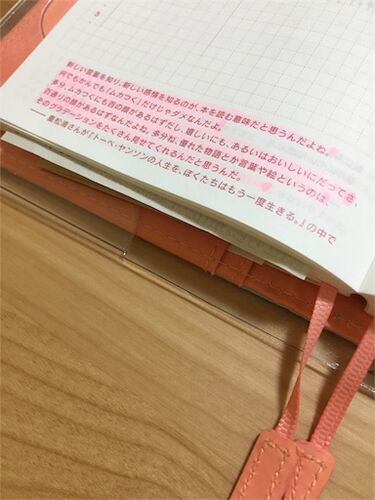 3
新しい言葉を知り、新しい感情を知るのが、本を読む意味だと思うんだよね。
何でもかんでも「ムカつく」だけじゃダメなんだよ。
多分、ムカつくにも百の顔があるはずだし、嬉しいにも、あるいはおいしいにだってさ、
百通りの顔があるはずなんだよね。多分ね、優れた物語とか言葉や絵というのは、
そのグラデーションをたくさん見せてくれるんだと思うんだ。
——重松清さんが『トーベ・ヤンソンの人生を、ぼくたちはもう一度生きる。』の中で